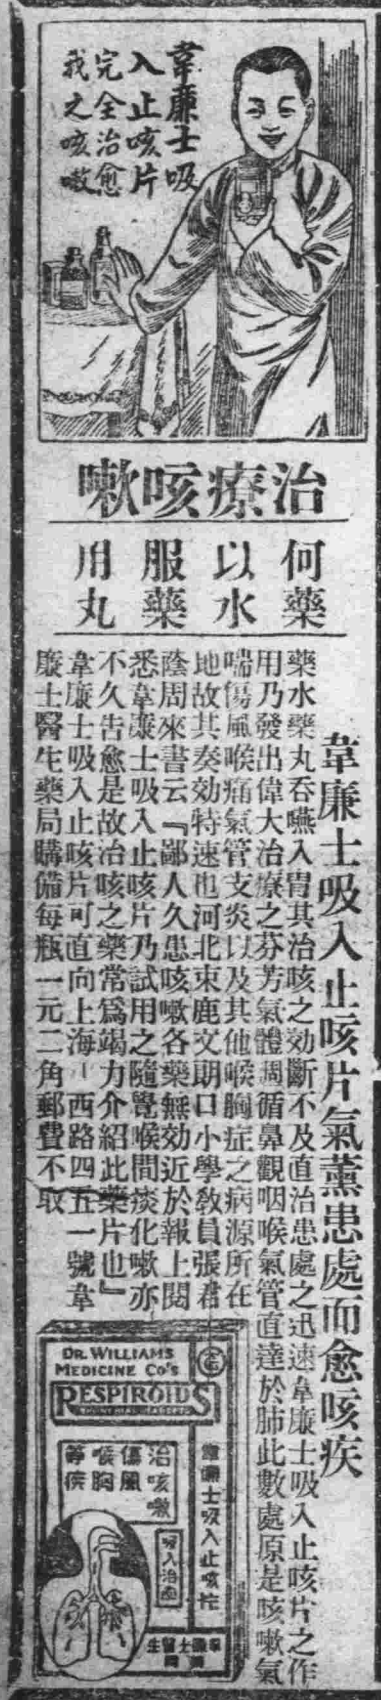 韋廉士吸
入止咳片
完全治愈
我之咳嗽
治療咳嗽
何藥
以水
服藥
用丸
韋廉士吸入止咳片氣薰患處而愈咳疾
藥水藥丸吞嚥入胃其治咳之効斷不及直治患處之迅速韋廉士吸入止咳片之作
用乃發出偉大治療之芬芳氣體週循鼻觀咽喉氣管直達於肺此數處原是咳嗽氣
喘傷風喉痛氣管支炎以及其他喉胸症之病源所在
地故其奏効特速也河北束鹿文期口小學教員張君
蔭周來書云『鄙人久患咳嗽各藥無効近於報上閱
悉韋廉士吸入止咳片乃試用之隨覺喉間痰化嗽亦
不久告愈是故治咳之藥常爲竭力介紹此藥片也』
韋廉士吸入止咳片可直向上海西路四五一號韋
廉士醫生藥局購備每瓶一元二角郵費不取
DR. WILLIAMS
MEDICINE CO'S
RESPIROIDS
韋廉士吸入止咳片
治咳嗽
傷風
喉胸
等疾
吸入治